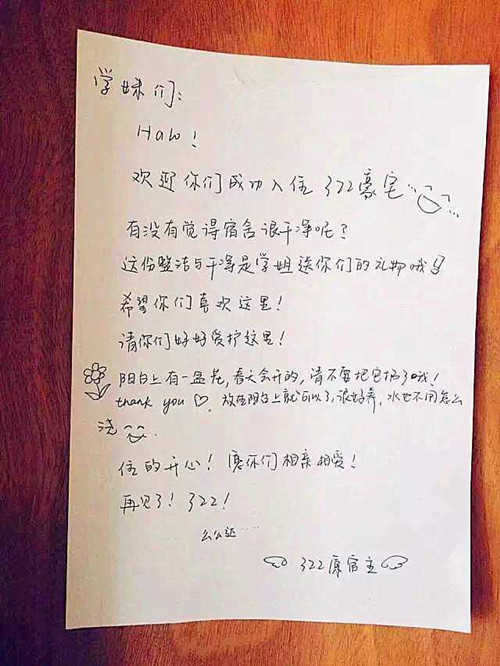 学妹们:
Halo!
欢迎你们成功入住322豪宅…
有没有觉得宿舍很干净呢?
这份整洁与干净是学姐送你们的礼物哦!
希望你们喜欢这里!
请你们好好爱护这里!
阳台上有一盆花,春天会开的,请不要把它扔了哦!
thank you ♡. 放在阳台上就可以了,很好养,水也不用怎么
浇.
住的开心!愿你们相亲相爱!
再见了!322!
么么哒……
322原宿主